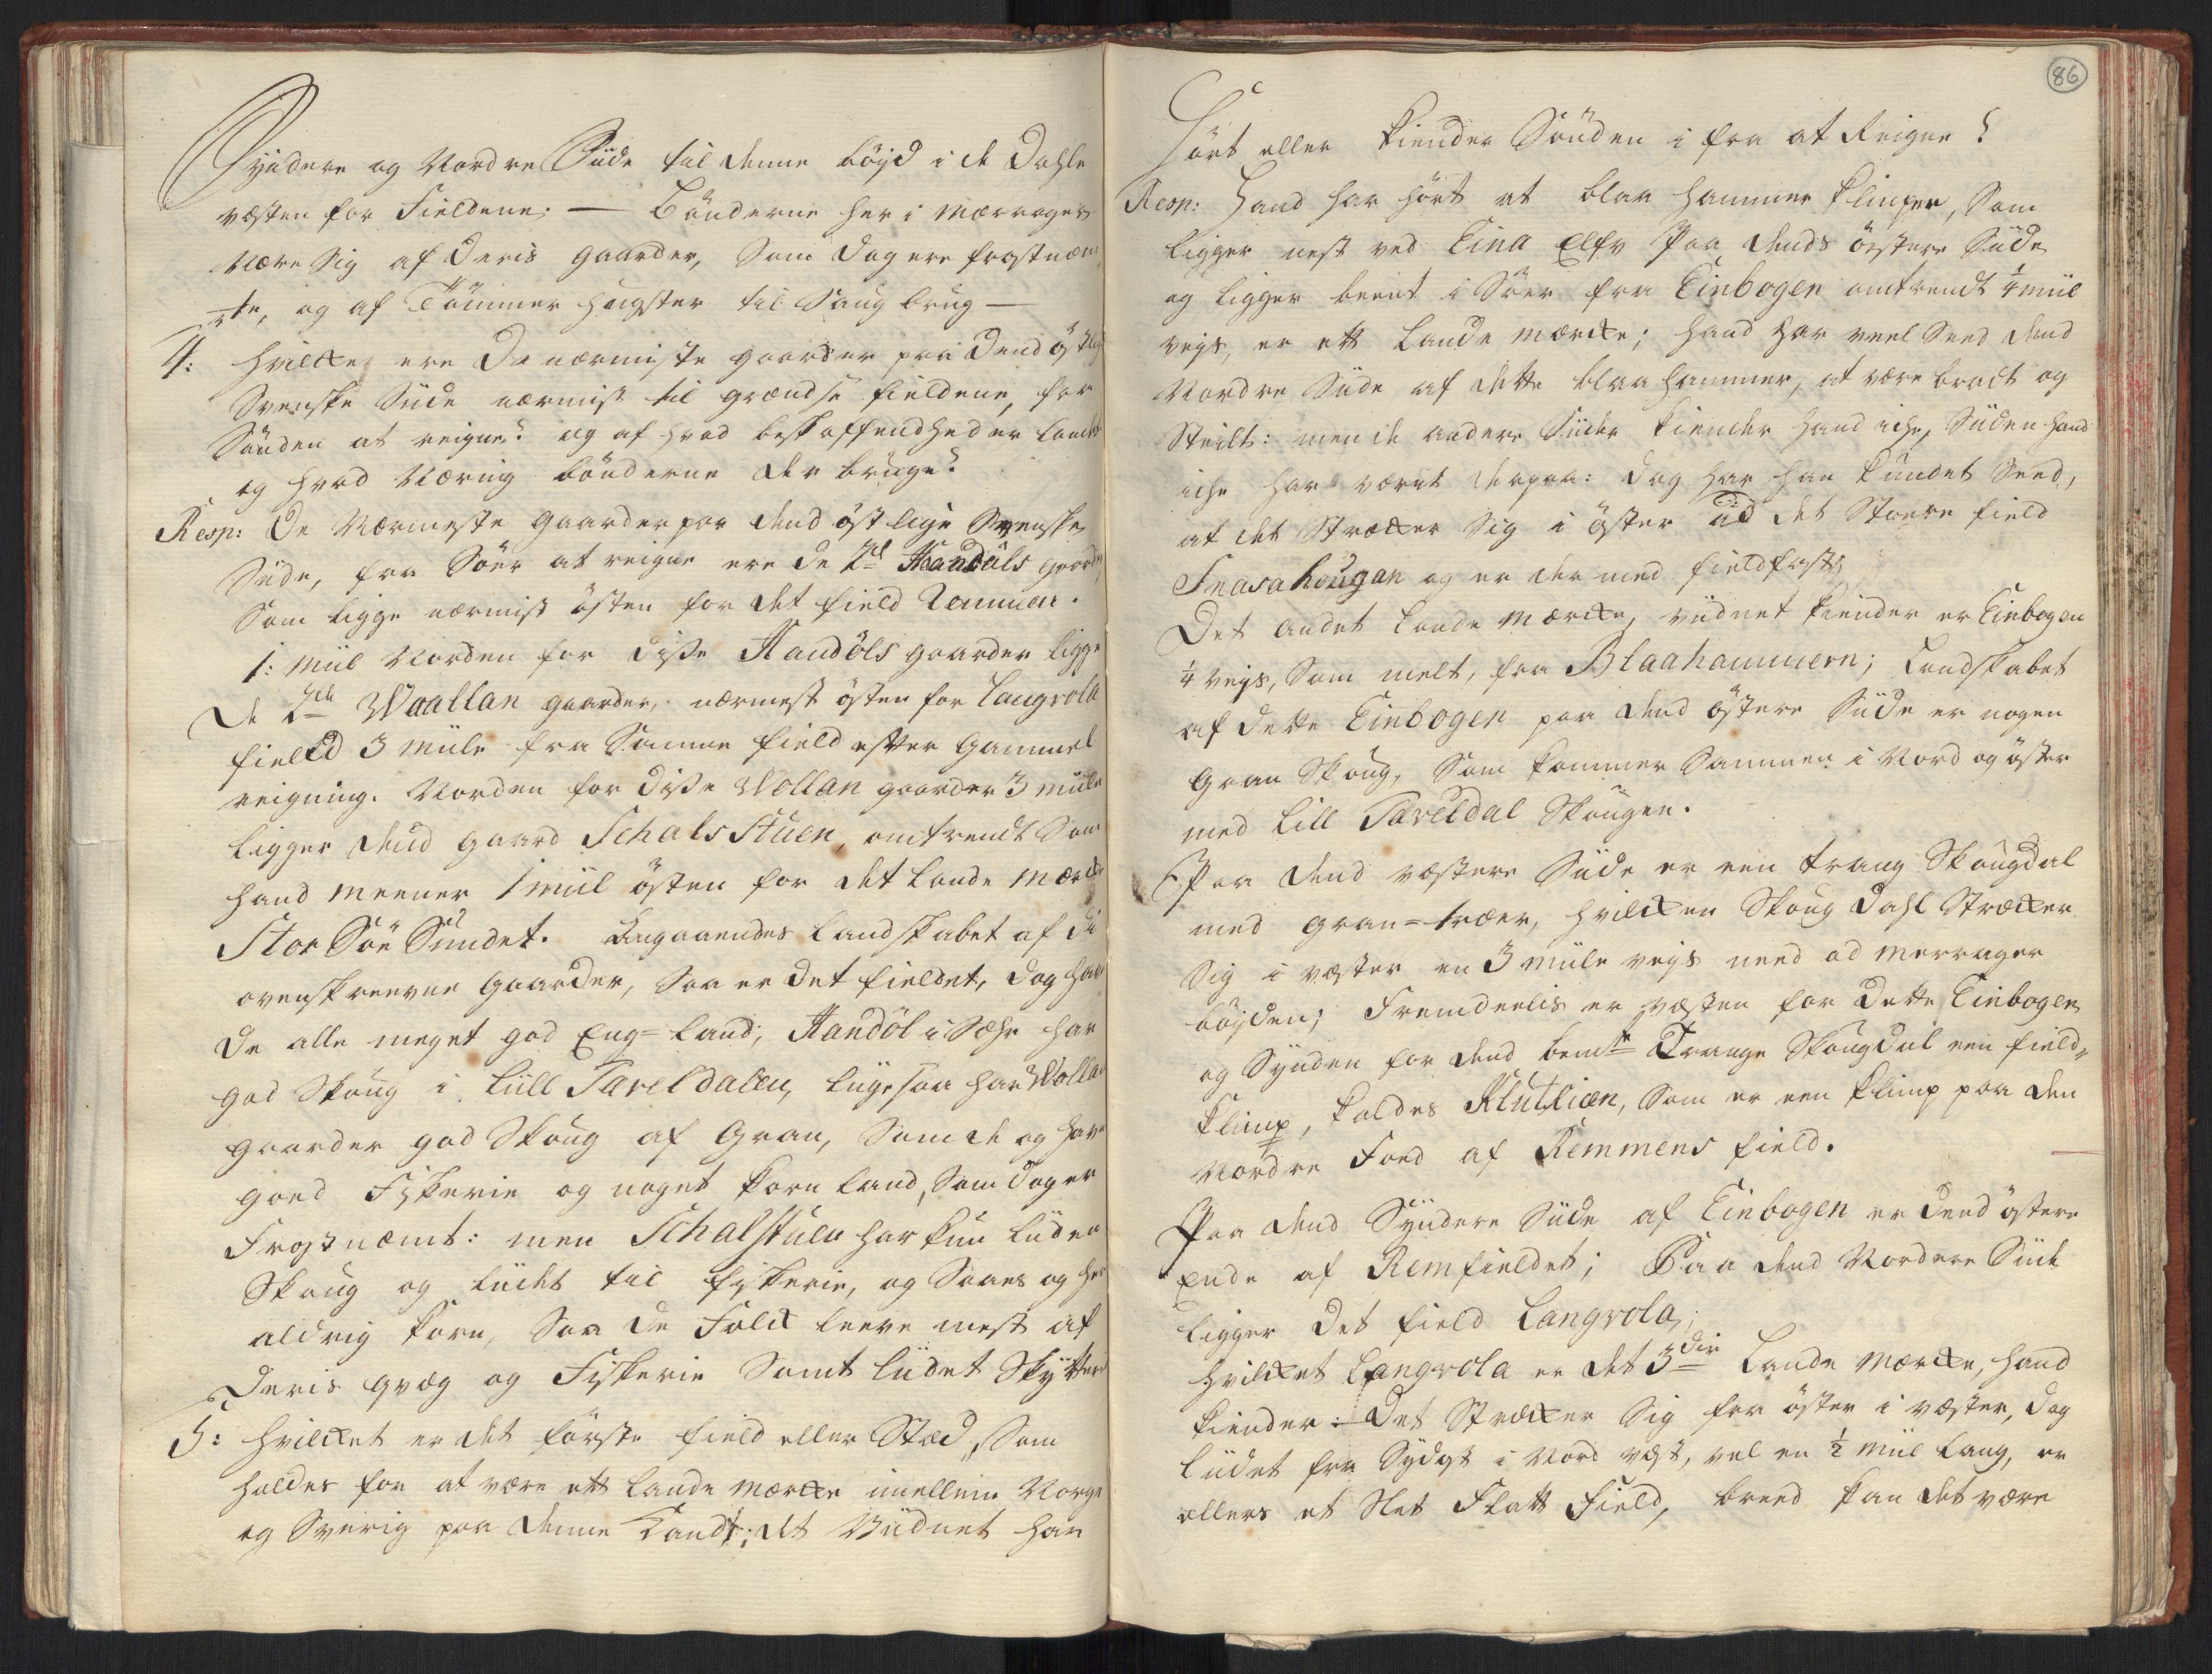 Syndere og Nordre Siide til denne böijd i de Dahle
vesten for Fieldene; — Bönderne her i Mærrager
nære Sig af Deris gaarder, Som dog ere frostnæm-
te, og af Tömmer hugster til Saug brug —
4: Hvilcke ere de nærmeste gaarder paa dend östlig
Svenske Siide nærmist til grændse fieldene, fra
Sönden at reigne? og af hvad beskaffendhed er landet
og hvad Næring bönderne der bruge?
Resp: De Nærmeste gaarder paa dend östlige Svenske
Siide, fra Söer at reigne ere de 2de Handöls gaarde,
Som ligge nærmist östen for det field Remmen.
1: miil Norden for disse Handöls gaarder ligge
de 2de Waallan gaarder, nærmest östen for Langrola
field 3 miile fra Samme field efter Gammel
reigning. Norden for disse Wollan gaarder 3 miile
ligger dend gaard Schals Stuen, omtrendt Som
hand meener 1 miil östen for det Lande Mærcke
Stor Söe Sundet. Angaaendes landskabet af di
ovenskreevne gaarder, saa er det fieldet, dog har
de alle meget god Eng-land; Handöl i Sehr har
god Skoug i Liill Tareldalen, liigesaa har Wolla
gaarder god Skoug af Gran, Som de og have
goed Fiskerie og noget korn land, Som dog er
Frostnæmt: men Schalstuen har kun liiden
Skoug og liidet til fiskerie, og Saaes og her
aldrig korn, Saa de Folck leeve mest af
deris qvæg og Fiskerie Samt liidet Skytterie
5: Hvilcket er det förste field eller Stæd, Som
holdes for at være ett Lande Mærcke imellem Norge
og Sverig paa denne Kandt; det Viidnet har
86
hört eller kiender Sönden i fra at Reigne?
Resp: Hand har hört at blaa hammer klimpen, Som
ligger nest ved Eina Elfv paa dends östere Siide
og ligger beent i Söer fra Einbogen omtrendt 1/4 miil
veys, er ett Lande Mærcke; hand har veel Seed dend
Nordre Siide af dette blaa hammer, at være bradt og
Steilt: men de andere Siider kiender hand iche, Siiden hand
iche har værit derpaa: dog har han kundet Seed,
at det Strecker Sig i öster ud det Störe field
Snasahougan og er der med fieldfast,
Det andet Lande Mærcke, viidnet kiender er Einbogen
1/4 veys, Som melt, fra Blaahammern; Landskabet
af dette Einbogen paa dend östere Siide er nogen
gran Skoug, Som kommer Sammen i Nord og öster
med Lill Tareldal Skougen.
Paa dend vestere Siide er een trang Skougdal
med gran-træer, hvilcken Skoug Dahl Strecker
Sig i vester en 3 miile veys need ad Merrager
böijden; Fremdeelis er vesten for dette Einbogen
og Synden for dend bemte Trange Skougdal een field-
klimp, kaldes Klutlien, Som er een klimp paa den
Nordre Foed af Remmens field.
Paa dend Syndere Siide af Einbogen er dend östere
Ende af Remfieldet; Paa dend Nordere Siide
ligger det field Langrola;
hvilcket Langrola er det 3die Lande Mærcke, hand
kiender: — Det Strecker Sig fra öster i vester, dog
liidet fra Sydost i Nord vest, vel en 1/2 miil lang, er
ellers et Slet Flatt Field, breed kan det være